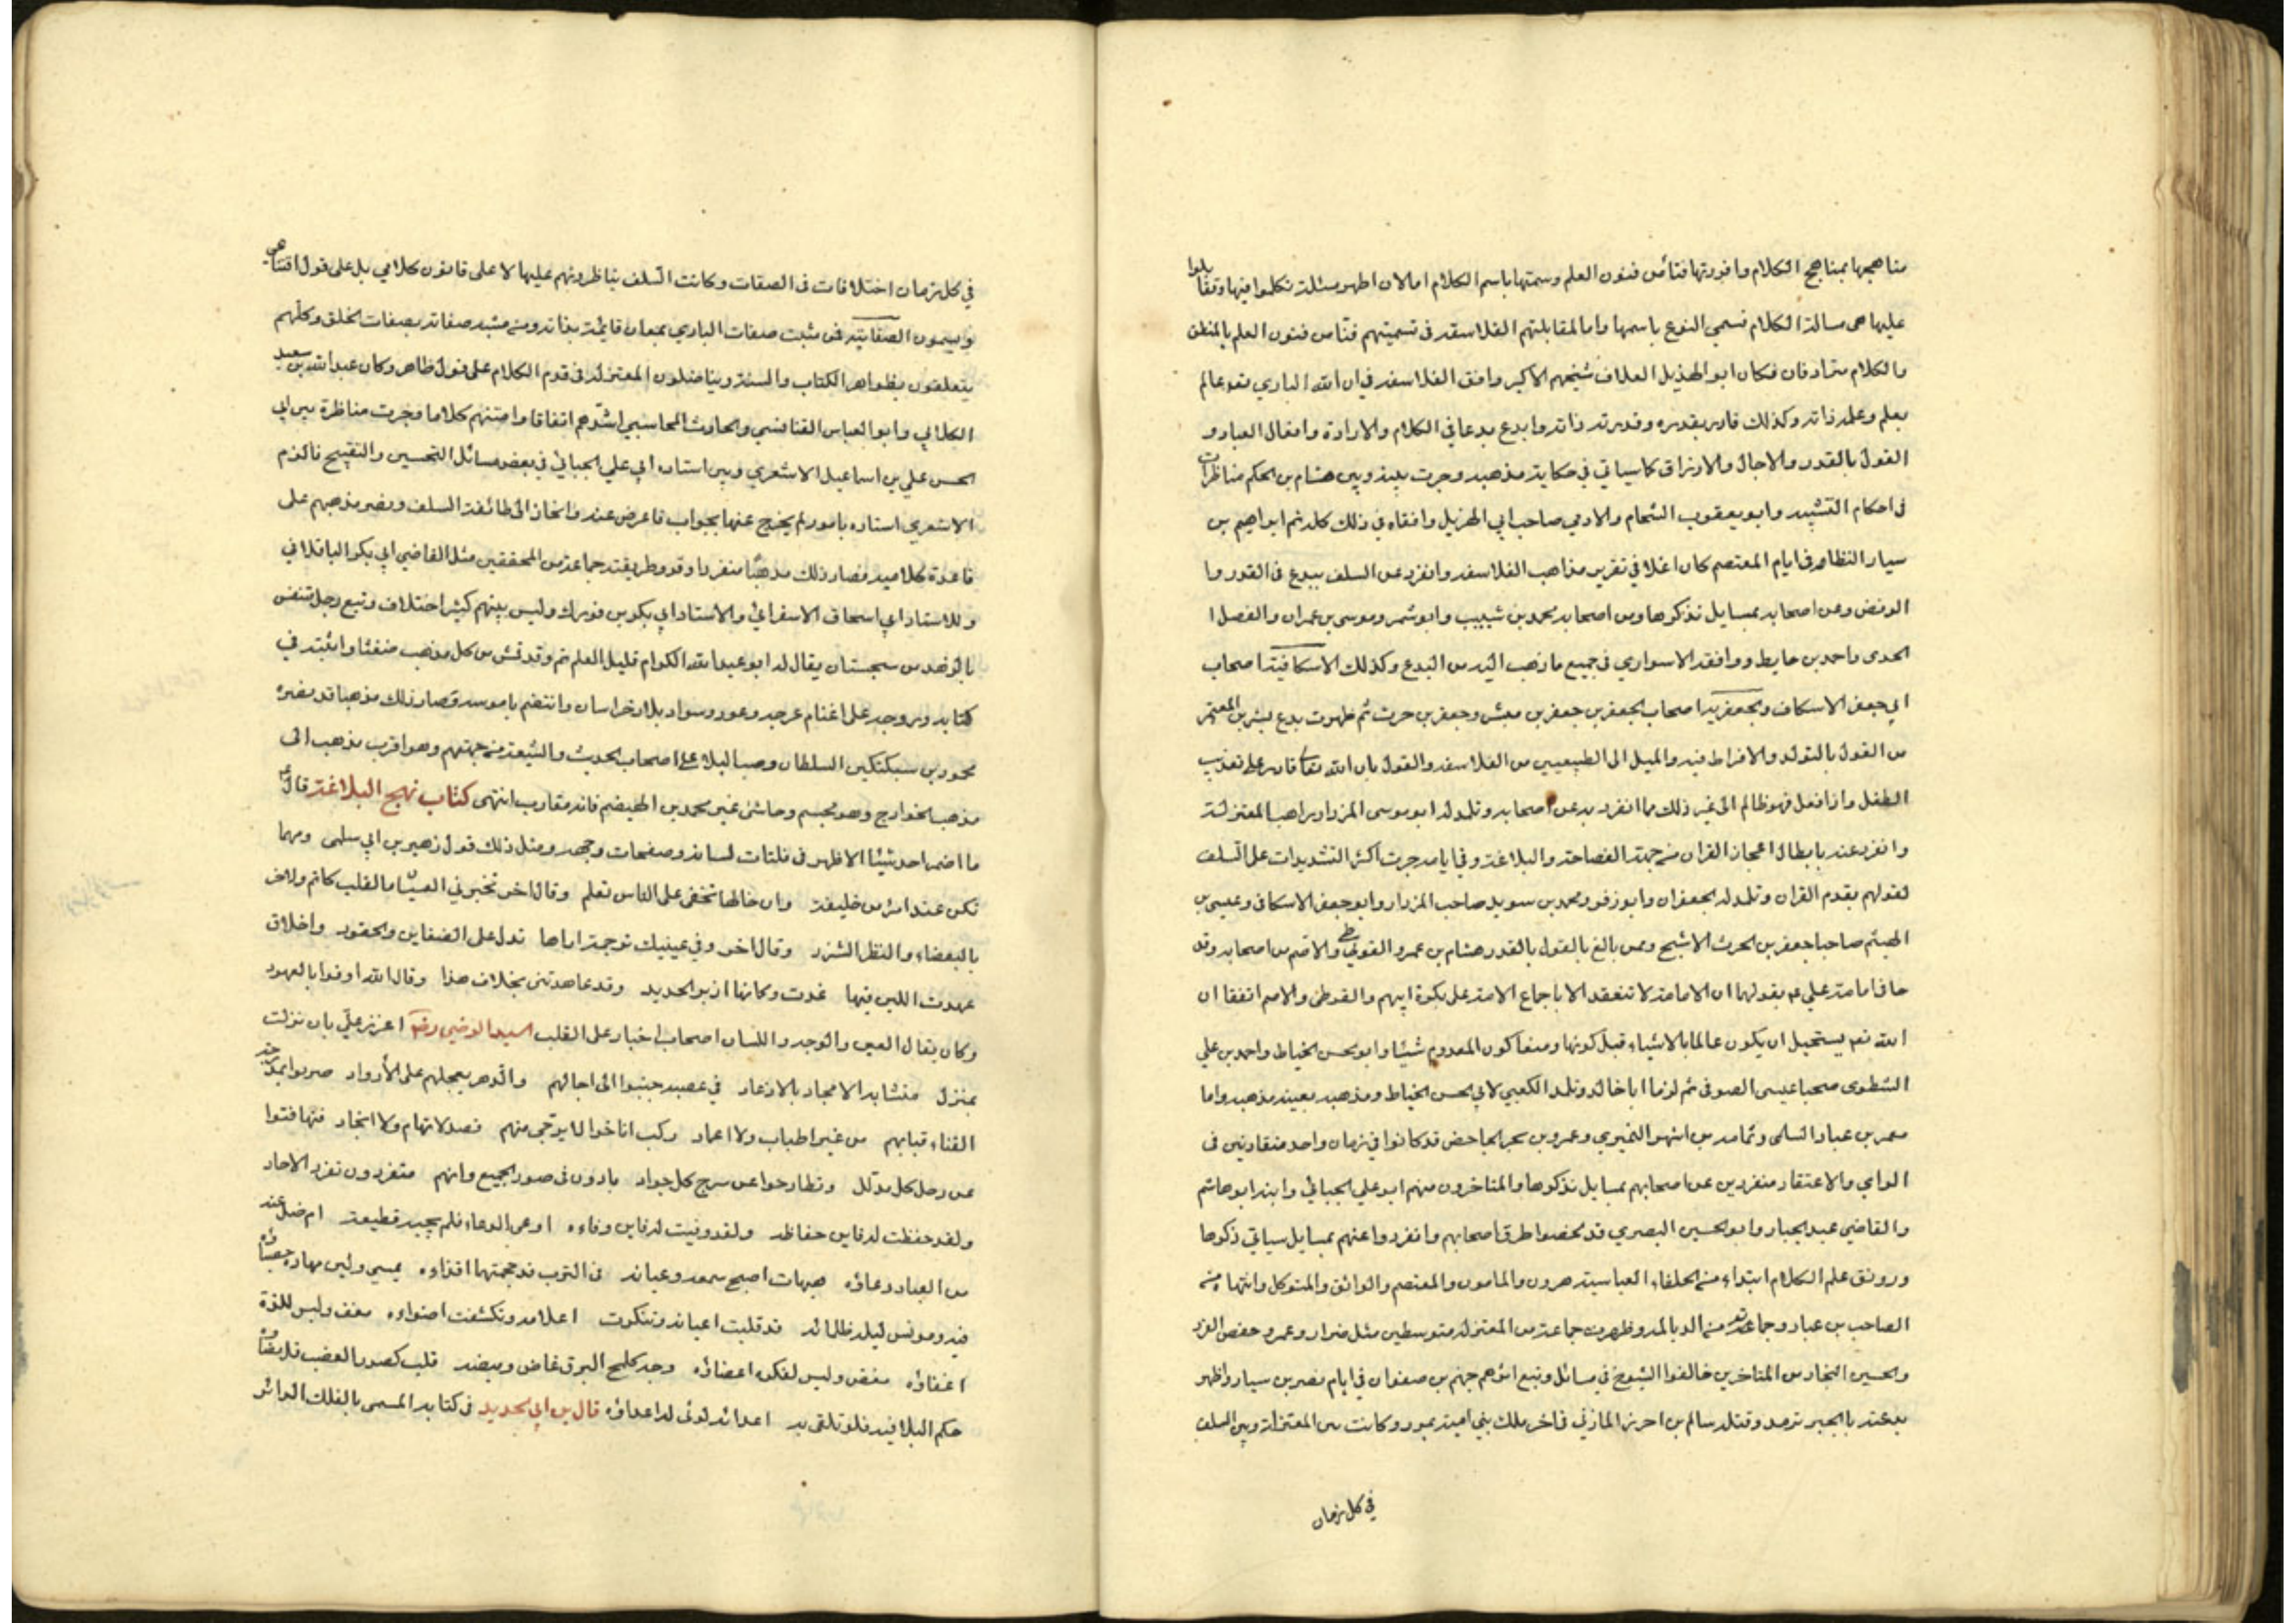 مناهجها بمناهج الكلام وافردتها فنا من فنون العلم وسمتها باسم الكلام اما لان اظهر مسئلة تكلموا فيها وتقابلوا
عليها هي مسالة الكلام فسمي النوع باسمها واما لمقابلتهم الفلاسفة في تسميتهم فنا من فنون العلم بالمنطق
والكلام مترادفان فكان ابو الهذيل العلاف شيخهم الاكبر وافق الفلاسفة في ان الله الباري تعه عالم
بعلم وعلمه ذاته وكذلك قادر بقدره وقدرته ذاته وابدع بدعا في الكلام والارادة وافعال العباد و
القول بالقدر والاجال والارزاق كما سياتي في حكاية مذهبه وجرت بينه وبين هشام بن الحكم مناظرات
في احكام التشبيه وابو يعقوب الشحام والادمي صاحب ابي الهزيل وافقاه في ذلك كله ثم ابراهيم بن
سيار النظام في ايام المعتصم كان اغلا في تقرير مذاهب الفلاسفة وانفرد عن السلف ببدع في القدر وا
الرفض وعن اصحابه بمسايل نذكرها ومن اصحابه محمد بن شبيب وابو شمر وموسى بن عمران والفصل ا
الحدى واحمد بن حايط ووافقه الاسواري في جميع ما ذهب اليه من البدع وكذلك الاسكافية اصحاب
ابي جعفر الاسكاف والجعفرية اصحاب الجعفرين جعفر بن مبشر وجعفر بن حرث ثم ظهرت بدع بشر بن المعتمر
من القول بالتولد والافراط فيه والميل الى الطبيعيين من الفلاسفة والقول بان الله تعا قادر على تعذيب
الطفل واذا فعل فهو ظالم الى غير ذلك مما انفرد به عن اصحابه وتلمذ له ابو موسى المزدار راهب المعتزلة
وانفرد عنه بابطال اعجاز القران من جهة الفصاحة والبلاغة وفي ايامه جرت اكثر التشديدات على السلف
لقولهم بقدم القران وتلمذ له الجعفران وابو زفر ومحمد بن سويد صاحب المزدار وابو جعفر الاسكافى وعيسى بن
الهيثم صاحبا جعفر بن الحرث الاشبح وممن بالغ بالقول بالقدر هشام بن عمرو الفوطي والاصم من اصحابه وقد
حا فا مامة علي عم بقولهما ان الامامة لا تنعقد الا باجماع الامة على بكرة ابيهم والفوطى والاصم اتفقا ان
الله تعه يستحيل ان يكون عالما بالاشياء قبل كونها ومنعا كون المعدوم شيئا وابو الحسن الخياط واحمد بن علي
الشطوى صحبا عيسى الصوفى ثم لزما ابا خالد وتلمذ الكعبي لابي الحسن الخياط ومذهبه بعينه مذهبه واما
معمر بن عباد السلمى وثمامة بن اشهر النميري وعمرو بن بحر الجاحض قد كانوا في زمان واحد متقاربين فى
الراي والاعتقاد منفردين عن اصحابهم بمسايل نذكرها والمتاخرون منهم ابو علي الجبائي وابنه ابو هاشم
والقاضي عبد الجبار وابو الحسين البصري قد لخصوا طرق اصحابهم وانفردوا عنهم بمسايل سياتي ذكرها
ورونق علم الكلام ابتداءه من الخلفاء العباسية هرون والمامون والمعتصم والواثق والمتوكل وانتهاه من
الصاحب بن عباد وجماعة من الديالمة وظهرت جماعة من المعتزلة متوسطين مثل ضرار وعمرو حفص الفرد
والحسين النجار من المتاخرين خالفوا الشيوخ في مسائل وتبع اثرهم جهم بن صفوان في ايام نصر بن سيار واظهر
بدعته بالجبر ترمد وقتله سالم بن احرز المازني في اخر ملك بني امية بمرو وكانت بين المعتزلة وبين السلف
في كل زمان
في كل زمان اختلافات فى الصفات وكانت السلف يناظرونهم عليها لا على قانون كلامي بل على قول اقناعي
ويسمون الصفاتية فمن مثبت صفات الباري بمعان قائمة بذاته ومن مشبه صفاته بصفات الخلق وكلهم
يتعلقون بظواهر الكتاب والسنة ويناضلون المعتزلة في قدم الكلام على قول ظاهر وكان عبد الله بن سعيد
الكلابي وابو العباس القنانسي والحارث المحاسبي اشدهم اتفاقا وامتنهم كلاما وجرت مناظرة بين ابي
الحسن علي بن اسماعيل الاشعري وبين استاده ابي علي الجبائي في بعض مسائل التحسين والتقبيح فالزم
الاشعري استاده بامور لم يخرج عنها بجواب فاعرض عنه وانحاز الى طائفة السلف ونصر مذهبهم على
قاعدة كلامية فصار ذلك مذهبا منفردا وقرر طريقته جماعة من المحققين مثل القاضي ابي بكر الباقلاني
وللاستاد ابي اسحاق الاسفرائي والاستاد ابي بكر بن فورك وليس بينهم كثير اختلاف وتبع رجل متنفس
بالزهد من سجستان يقال له ابو عبد الله الكرام قليل العلم ثم وقد قمش من كل مذهب ضغثا واثبته في
كتابه وروجه على اغنام عرجه وعور وسواد بلاد خراسان وانتضم ناموسه فصار ذلك مذهبا قد نصره
محمود بن سبكتكين السلطان وصب البلاء على اصحاب الحديث والشيعة من جهتهم وهو اقرب مذهب الى
مذهب الخوارج وهو مجسم وحاشى غير محمد بن الهيضم فانه مقارب انتهى كتاب نهج البلاغة قال ع
ما اضمر احد شيئا الا ظهر في فلتات لسانه وصفحات وجهه ومثل ذلك قول زهير بن ابي سلمى ومهما
تكن عند امرء من خليقة وان خالها تخفى على الناس تعلم وقال اخر تخبرني العينان ما القلب كاتم ولاخر
بالبغضاء والنظر الشزر وقال اخر وفي عينيك ترجمة اراها تدل على الضغاين والحقود واخلاق
عهدت اللين فيها غدت وكانها زبر الحديد وقد عاهدتني بخلاف هذا وقال الله اوفوا بالعهود
وكان يقال العين والوجه واللسان اصحاب اخبار على القلب السيد الرضي رضه اعزز علي بان نزلت
بمنزل متشابه الامجاد بالاوغاد في عصبة جنبوا الى اجالهم والدهر يعجلهم على الأرواد ضربوا بمدرجة
الفناء قبابهم من غير اطباب ولا اعماد ركب اناخوا لا يرجى منهم قصد لاتهام ولا انجاد فتهافتوا
عن رحل كل مذلل وتطارحوا عن سرج كل جواد بادون فى صور الجميع وانهم متفردون تفرد الاحاد
ولقد حفظت له فاين حفاظه ولقد وفيت له فاين وفاءه اوعى الدعاء فلم يجبه قطيعة ام ضل عنه
من العباد دعاؤه هيهات اصبح سمعه وعيانه في الترب قد حجبتها اقذاءه يمسي ولين مهاده حصباؤه
فيه ومونس ليله ظلمائه قد قلبت اعيانه وتنكرت اعلامه وتكشفت اضواءه مغف وليس للذة
اغفاؤه مغض وليس لفكر اغضاؤه وجه كلمح البرق غاض وميضه قلب كصدر العضب فل مضاؤه
حكم البلا فيه فلو تلقى به اعدائه لرثى له اعداؤه قال بن ابي الحديد في كتابه المسمى بالفلك الدائر